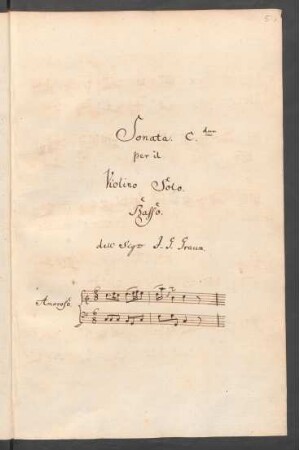 Sonata. C. dur
per il
Violino Solo.
è
Basso.
dell' Sigr J. G. Graun.
Amoroso.